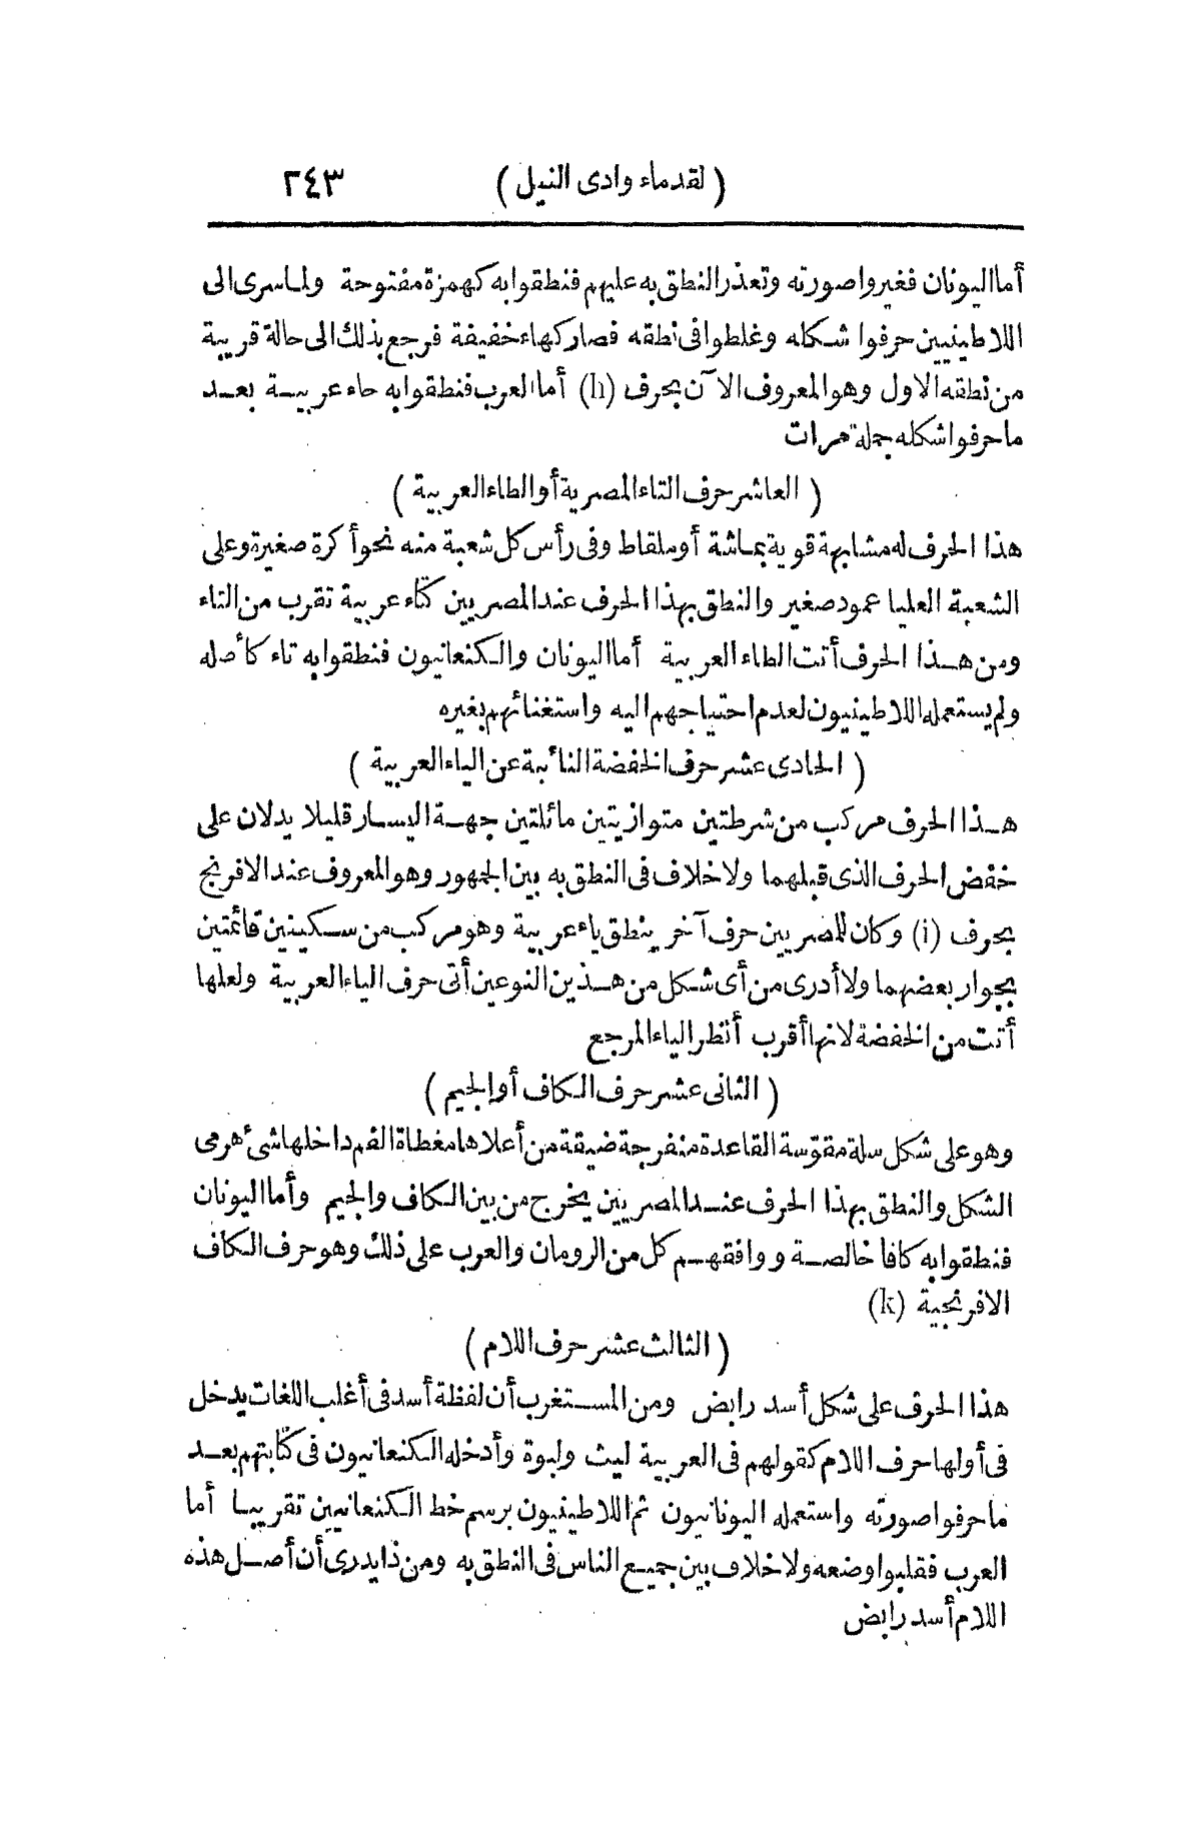 ( لقدماء وادى النيل ) ٢٤٣
أما اليونان فغيروا صورته وتعذر النطق به عليهم فنطقوا به كهمزة مفتوحة ولما سرى الى
اللاطينيين حرفوا شكله وغلطوا فى نطقه فصار كهاء خفيفة فرجع بذلك الى حالة قريبة
من نطقه الاول وهو المعروف الآن بحرف (h) أما العرب فنطقوا به حاء عربية بعد
ما حرفوا شكله جملة مرات
( العاشر حرف التاء المصرية أو الطاء العربية )
هذا الحرف له مشابهة قوية بماشة أو ملقاط وفى رأس كل شعبة منه نحو أكرة صغيرة وعلى
الشعبة العليا عمود صغير والنطق بهذا الحرف عند المصريين كتاء عربية تقرب من التاء
ومن هذا الحرف أتت الطاء العربية أما اليونان والكنعانيون فنطقوا به تاء كأصله
ولم يستعمله اللاطينيون لعدم احتياجهم اليه واستغنائهم بغيره
( الحادى عشر حرف الخفضة النائبة عن الياء العربية )
هذا الحرف مركب من شرطتين متوازيتين مائلتين جهة اليسار قليلا يدلان على
خفض الحرف الذى قبلهما ولا خلاف فى النطق به بين الجمهور وهو المعروف عند الافرنج
بحرف (i) وكان للمصريين حرف آخر ينطق ياء عربية وهو مركب من سكينين قائمتين
بجوار بعضهما ولا أدرى من أى شكل من هذين النوعين أتى حرف الياء العربية ولعلها
أتت من الخفضة لانها أقرب أنظر الياء المرجع
( الثانى عشر حرف الكاف أو الجيم )
وهو على شكل سلة مقوّسة القاعدة منفرجة ضيقة من أعلاها مغطاة الفم داخلها شئ هرمى
الشكل والنطق بهذا الحرف عند المصريين يخرج من بين الكاف والجيم وأما اليونان
فنطقوا به كافا خالصة ووافقهم كل من الرومان والعرب على ذلك وهو حرف الكاف
الافرنجية (k)
( الثالث عشر حرف اللام )
هذا الحرف على شكل أسد رابض ومن المستغرب أن لفظة أسد فى أغلب اللغات يدخل
فى أولها حرف اللام كقولهم فى العربية ليث ولبوة وأدخله الكنعانيون فى كتابتهم بعد
ما حرفوا صورته واستعمله اليونانيون ثم اللاطينيون برسم خط الكنعانيين تقريبا أما
العرب فقلبوا وضعه ولا خلاف بين جميع الناس فى النطق به ومن ذا يدرى أن أصل هذه
اللام أسد رابض